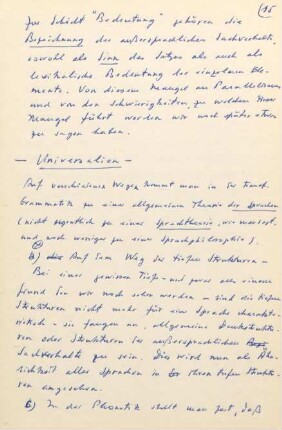 (15
Zur Schicht "Bedeutung" gehören die
Bezeichnung des aussersprachlichen Sachverhalts,
sowohl als Sinn des Satzes als auch als
lexikalische Bedeutung der einzelnen Ele-
mente. Von diesem Mangel an Parallelismus
und von den Schwierigkeiten, zu welchen dieser
Mangel führt werden wir noch später etwas
zu sagen haben.
— Universalien —
Auf verschiedenen Wegen kommt man in der transf.
Grammatik zu einer allgemeinen Theorie der Sprachen
(nicht eigentlich zu einer Sprachtheorie, wie
und noch weniger zu einer Sprachphilosophie).
a) Auf dem Weg der tiefen Strukturen –
Bei einer gewissen Tiefe – und zwar
wie wir noch sehen werden – sind die tiefen
Strukturen nicht mehr für eine Sprache charakte-
ristisch – sie fangen an, allgemeine Denkstruktu-
ren oder Strukturen der aussersprachlichen
Sachverhalte zu sein. Dies wird nun als Ähn-
lichkeit aller Sprachen in ihren tiefen Struktu-
ren angesehen.
b) In der Phonetik stellt man fest, daß